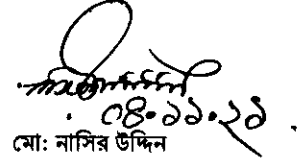 ০৪.১১.২১
মো: নাসির উদ্দিন